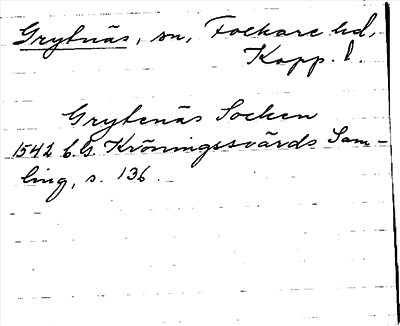 Grytnäs, sn, Folkare hd,
Kopp. l.
Grytenäs Socken
1542 b.G. Kröningssvärds Sam-
ling, s. 136.